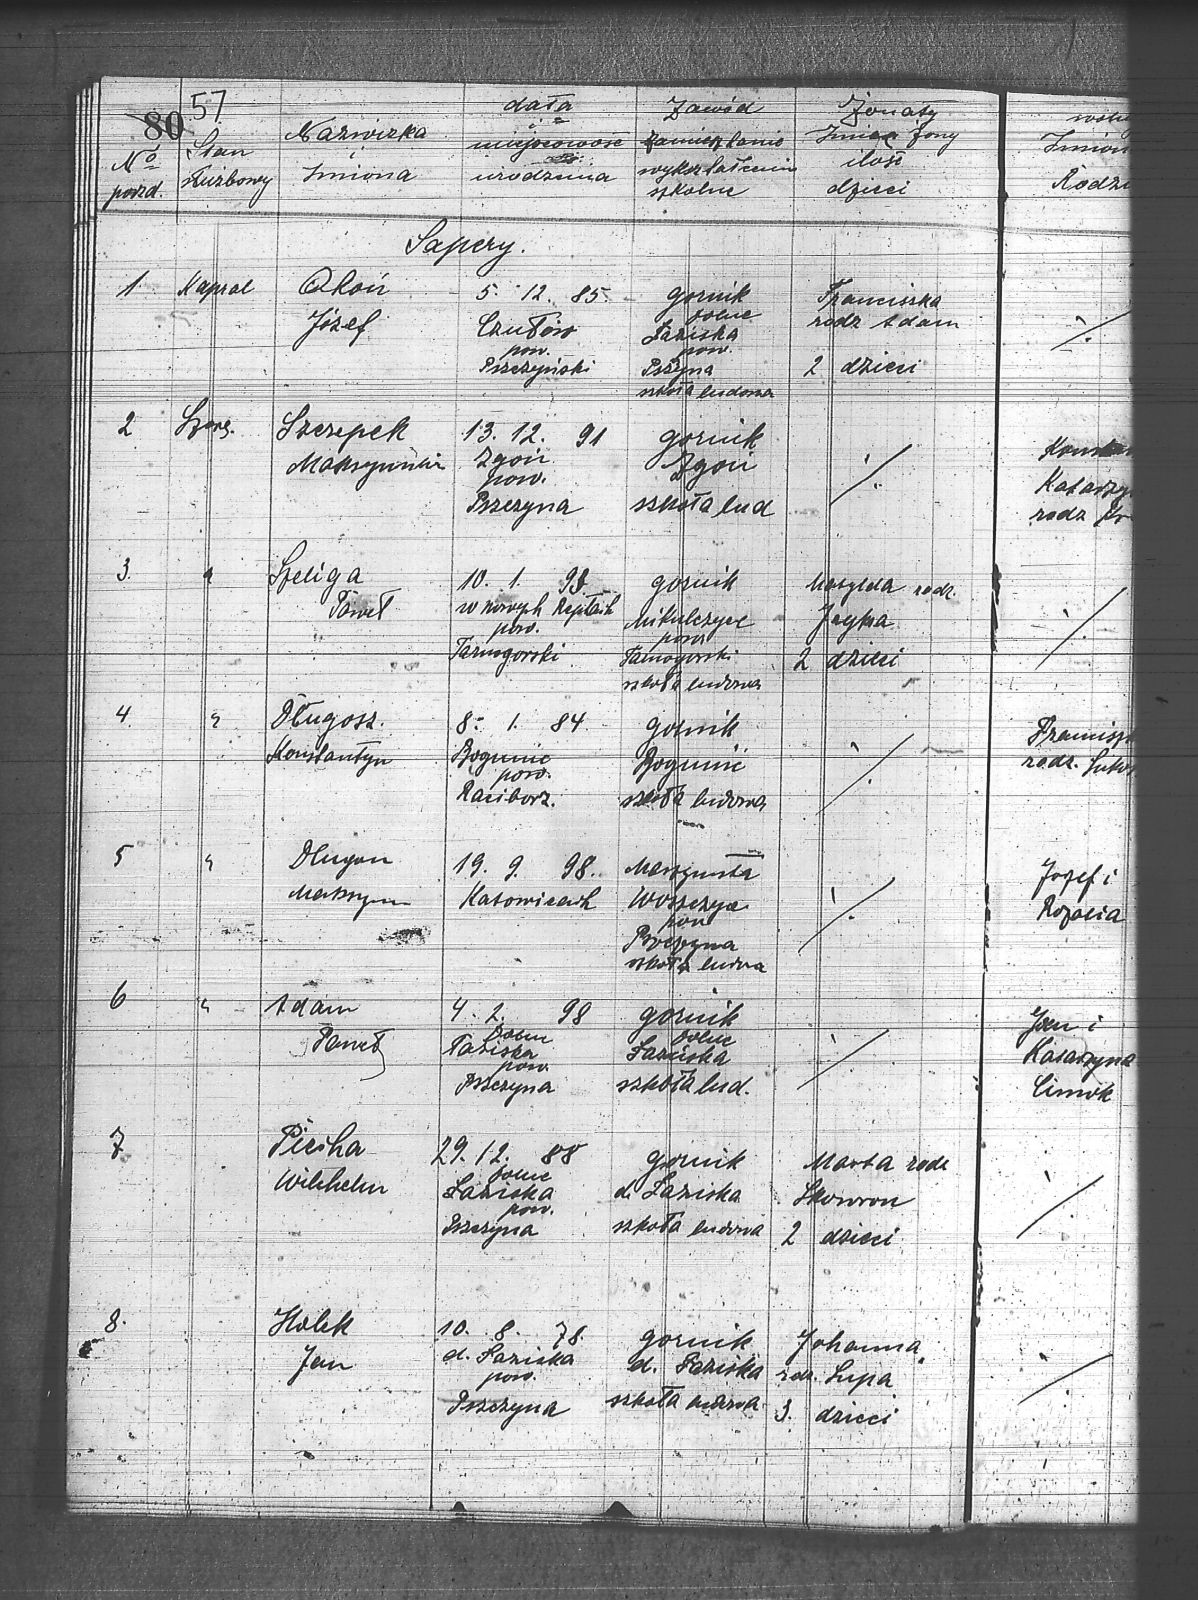 57
80
No porzd.
Stan służbowy
Nazwizka i Imiona
data i miejscowość urodzenia
Zawód zamieszkanie wykształcenie szkolne
Żonaty Imiea żony ilość dzieci
Sapery.
1 Kapral
Okoń
Józef
5. 12. 85.
Czułów
pow.
Pszczyński
gornik
dolne
Łaziska
pow.
Pszyna
szkoła ludowa
Franciszka
rodz Adam
2 dzieci
2 Szereg.
Szczepek
13. 12. 91
Zgoń
pow.
Pszczyna
gornik
Zgoń
szkoła lud
3.
Szeliga
Paweł
10. 1. 93
w nowych Reptach
pow.
Tarnogorski
gornik
Mikulczyce
pow.
Tarnogorski
szkoła ludowa
Matylda rodz.
2 dzieci
4
Długosz.
Konstantyn
8. 1. 84
Bogunic
pow.
Racibórz.
gornik
szkoła ludowa
5
Długon
19. 9. 98.
Katowicach
Woszczyce
pow
Pszczyna
szkoła ludowa
Jozef i
Rozalia
6
Adam
Paweł
4. 2. 98
dolne
Łaziska
pow.
Pszczyna
gornik
dolne
Łaziska
szkoła lud.
Jan i
Katarzyna
Cimok
7
Piecha
Wilhelm
29. 12. 88
dolne
Łaziska
pow.
Pszczyna
gornik
d. Łaziska
szkoła ludowa
Marta rodz
Skowron
2 dzieci
8.
Holek
Jan
10. 8. 78
d. Łaziska
pow.
Pszczyna
gornik
d. Łaziska
szkoła ludowa
Johanna
rdz. Lupa
3. dzieci